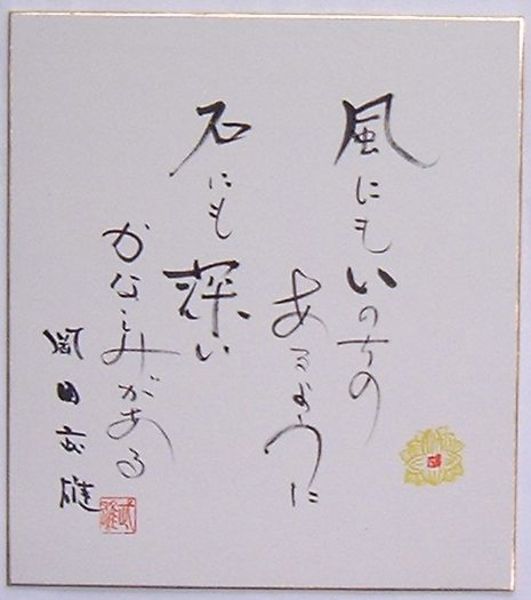 風にもいのちの
あるように
石にも深い
かなしみがある
岡田武雄